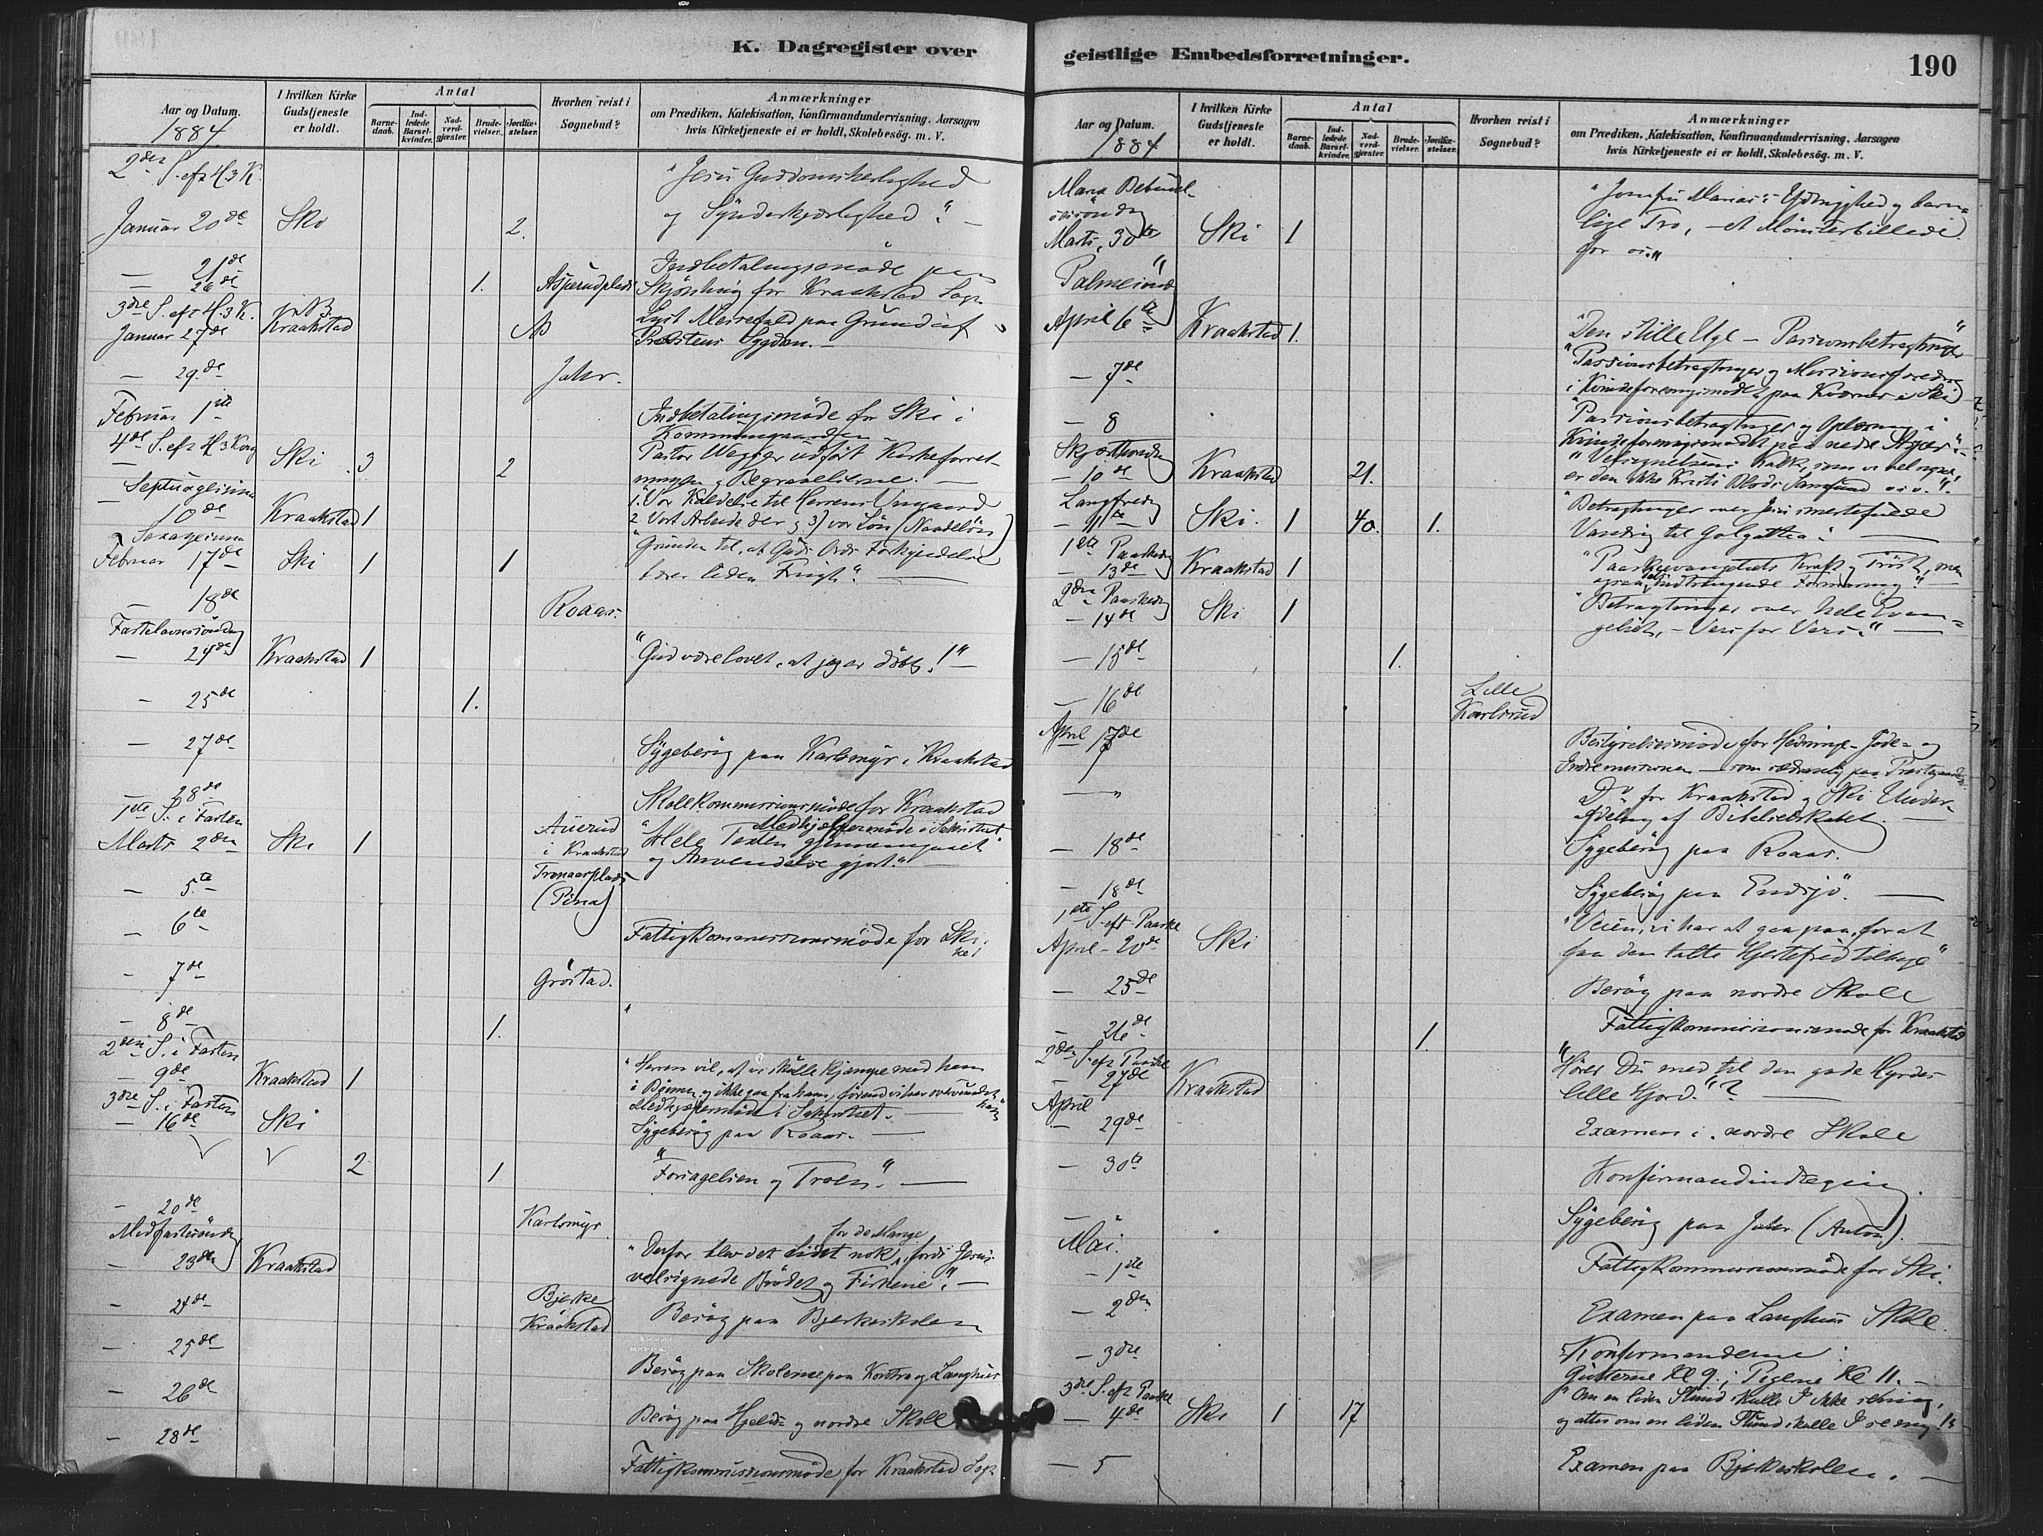 K. Dagregister over
Aar og Datum.
I hvilken Kirke
Gudstjeneste
er holdt.
Antal
Barne-
daab.
Ind-
ledede
Barsel-
kvinder.
Nad-
verd-
gjæster.
Brude-
vielser.
Jordfæ-
stelser.
Hvorhen reist i
Sognebud?
Anmærkninger
om Prædiken, Katekisation, Konfirmandundervisning, Aarsagen
hvis Kirketjeneste ei er holdt, Skolebesög. m. V.
1884.
2den S. eft H. 3 K.
Januar 20de Sko 2. "Jesu Guddomsherlighed
og Synderkjærlighed".
— 21de Indbetalingsmøde paa
— 26de 1. Asperudplads Skjönhaug for Kraakstad Sogn
3dre S. eft H. 3 K. NB.
Januar 27de Kraakstad No Lyst Messefald paa Grund af
Præstens Sygdom.
— 29de Jahr.
Februar 1ste Indbetalingsmøde for Ski i
Kommunegaarden
4de S. eft H. 3 Kong Ski 3 2 Pastor Wegger udført Kirkeforret-
ningen og Begravelserne.
Septuagesima
10de Kraakstad 1 1. Vor Kaldelse til Herrens Vingaard
2 Vort Arbeide der og 3) vor Løn (Naadeløn)
Sexagesima
Februar 17de Ski 1 1 "Grunden til, at Guds Ords Forkyndelse
bærer liden Frugt".
— 18de Roaas.
Fastelavnssöndag
— 24de Kraakstad 1 "Gud være lovet, at jeg er døbt!"
— 25de 1.
— 27de Sygebesög paa Karlsmyr i Kraakstad
28de Skolekommissionsmøde for Kraakstad
1ste S. i Fasten Medhjælpermøde i Sakristiet
Marts 2den Ski 1 Auerud
i Kraakstad "Hele Texten gjennemgaaet
og Anvendelse gjort"
— 5te Tronaasplads
(Pina)
— 6te Fattigkommissionsmøde for Ski.
— 7de Gröstad.
— 8de 1.
2den S. i Fasten
— 9de Kraakstad 1 "Herren vil, at vi skulle kjæmpe med ham
i Bønnen og ikke gaa fra ham, førend vi har overvundet ham"
3dre S. i Fasten Medhjælpermøde i Sakristiet.
— 16de Ski Sygebesög paa Roaas.
2 1 "Forsagelsen og Troen".
— 20de Karlsmyr
Midfastesöndag for de Mange
— 23de Kraakstad "Derfor blev det Lidet nok, fordi Jesus
velsignede Brødet og Fiskene".
— 24de Bjerke
Kraakstad Besög paa Bjerkeskolen
— 25de Besög paa Skolerne paa Kontra og Langhus
— 26de Besög paa Hjelde og nordre Skole
— 28de Fattigkommissionsmøde for Kraakstad Sogn
geistlige Embedsforretninger.
190
Aar og Datum.
I hvilken Kirke
Gudstjeneste
er holdt.
Antal
Barne-
daab.
Ind-
ledede
Barsel-
kvinder.
Nad-
verd-
gjæster.
Brude-
vielser.
Jordfæ-
stelser.
Hvorhen reist i
Sognebud?
Anmærkninger
om Prædiken, Katekisation, Konfirmandundervisning, Aarsagen
hvis Kirketjeneste ei er holdt, Skolebesög. m. V.
1884
Maria Bebud-
elsesöndag
Marts 30te Ski 1 "Jomfru Marias Ydmyghed og barn-
lige Tro, — et Mönsterbillede
for os."
Palmesönd
April 6te Kraakstad 1. "Den stille Uge — Passionsbetragtninger"
— 7de "Passionsbetragtninger og Missionsforedrag
i Kvindeforeningsmøde paa Kværner i Ski
— 8 "Passionsbetragtninger og Oplæsning i
Kvindeforeningsmødet paa nedre Asper"
Skjærthorsdag
— 10de Kraakstad 21. "Velsignelsens Kalk, som vi velsigne,
er den ikke Kristi Blods Samfund o.s.v."
Langfredag
— 11te Ski. 1 40. 1. "Betragtninger over Jesu smertefulde
Vandring til Golgattha"
1ste Paaskedag
— 13de Kraakstad 1 "Paaskeevangeliets Kraft og Tröst, men
ogsaa Indtrængende Formaning"
2den Paaskedag
— 14de Ski 1 "Betragtninger over hele Evan-
geliet, — Vers for Vers"
— 15de 1.
— 16de Lille
Karlsrud
April 17de Bestyrelsesmøde for Hedninge- Jöde- og
Indremissionen — som sædvanlig paa Præstegaarden
— " Do for Kraakstad og Ski Under-
afdeling af Bibelselskabet.
— 18de Sygebesög paa Roaas.
— 18de Sygebesög paa Endsjö.
1ste S. eft Paaske
April 20de Ski "Veien, vi har at gaa paa, for at
faa den tabte Hjertefred tilbage"
— 25de Besög paa nordre Skole
— 26de 1. Fattigkommissionsmøde for Kraakstad
2den S. eft Paaske
— 27de Kraakstad "Hører Du med til den gode Hyrdes
lille Hjord"?
April
— 29de Examen i nordre Skole
— 30te Konfirmandindtegning.
— Sygebesög paa Jahr (Anton).
Mai.
— 1ste Fattigkommissionsmøde for Ski.
— 2den Examen paa Langhus Skole.
— 3dre Konfirmanderne:
Gutterne Kl 9. Pigerne Kl 11.
3die S. eft Paaske
— 4de Ski 1 17 "Om en liden Stund skulle I ikke se mig,
og atter om en liden Stund skulle I se mig!"
— 5 Examen paa Bjerkeskolen.